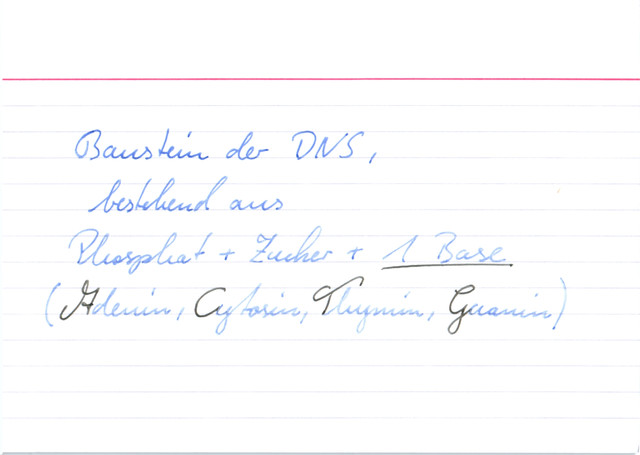 Baustein der DNS,
bestehend aus
Phosphat + Zucker + 1 Base
(Adenin, Cytosin, Thymin, Guanin)